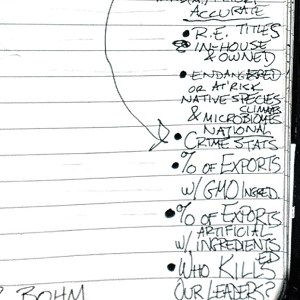 ACCURATE
• R.E. TITLES
IN-HOUSE
& OWNED
• ENDANGERED
OR AT RISK
NATIVE SPECIES
CLIMATES
& MICROBIOMES
NATIONAL
• CRIME STATS
• % OF EXPORTS
W/ GMO INGRED.
• % OF EXPORTS
ARTIFICIAL
W/ INGREDIENTS
• WHO KILLS
OUR LEADERS?
BOHM